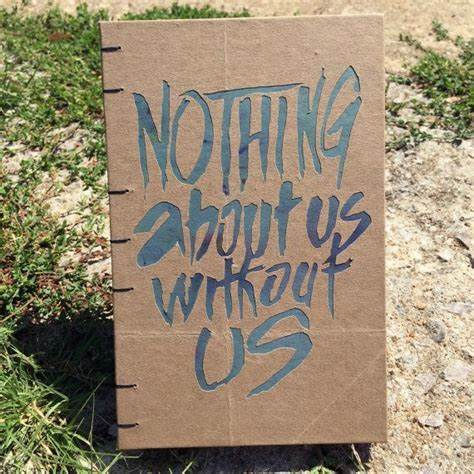 NOTHING
about us
without
US